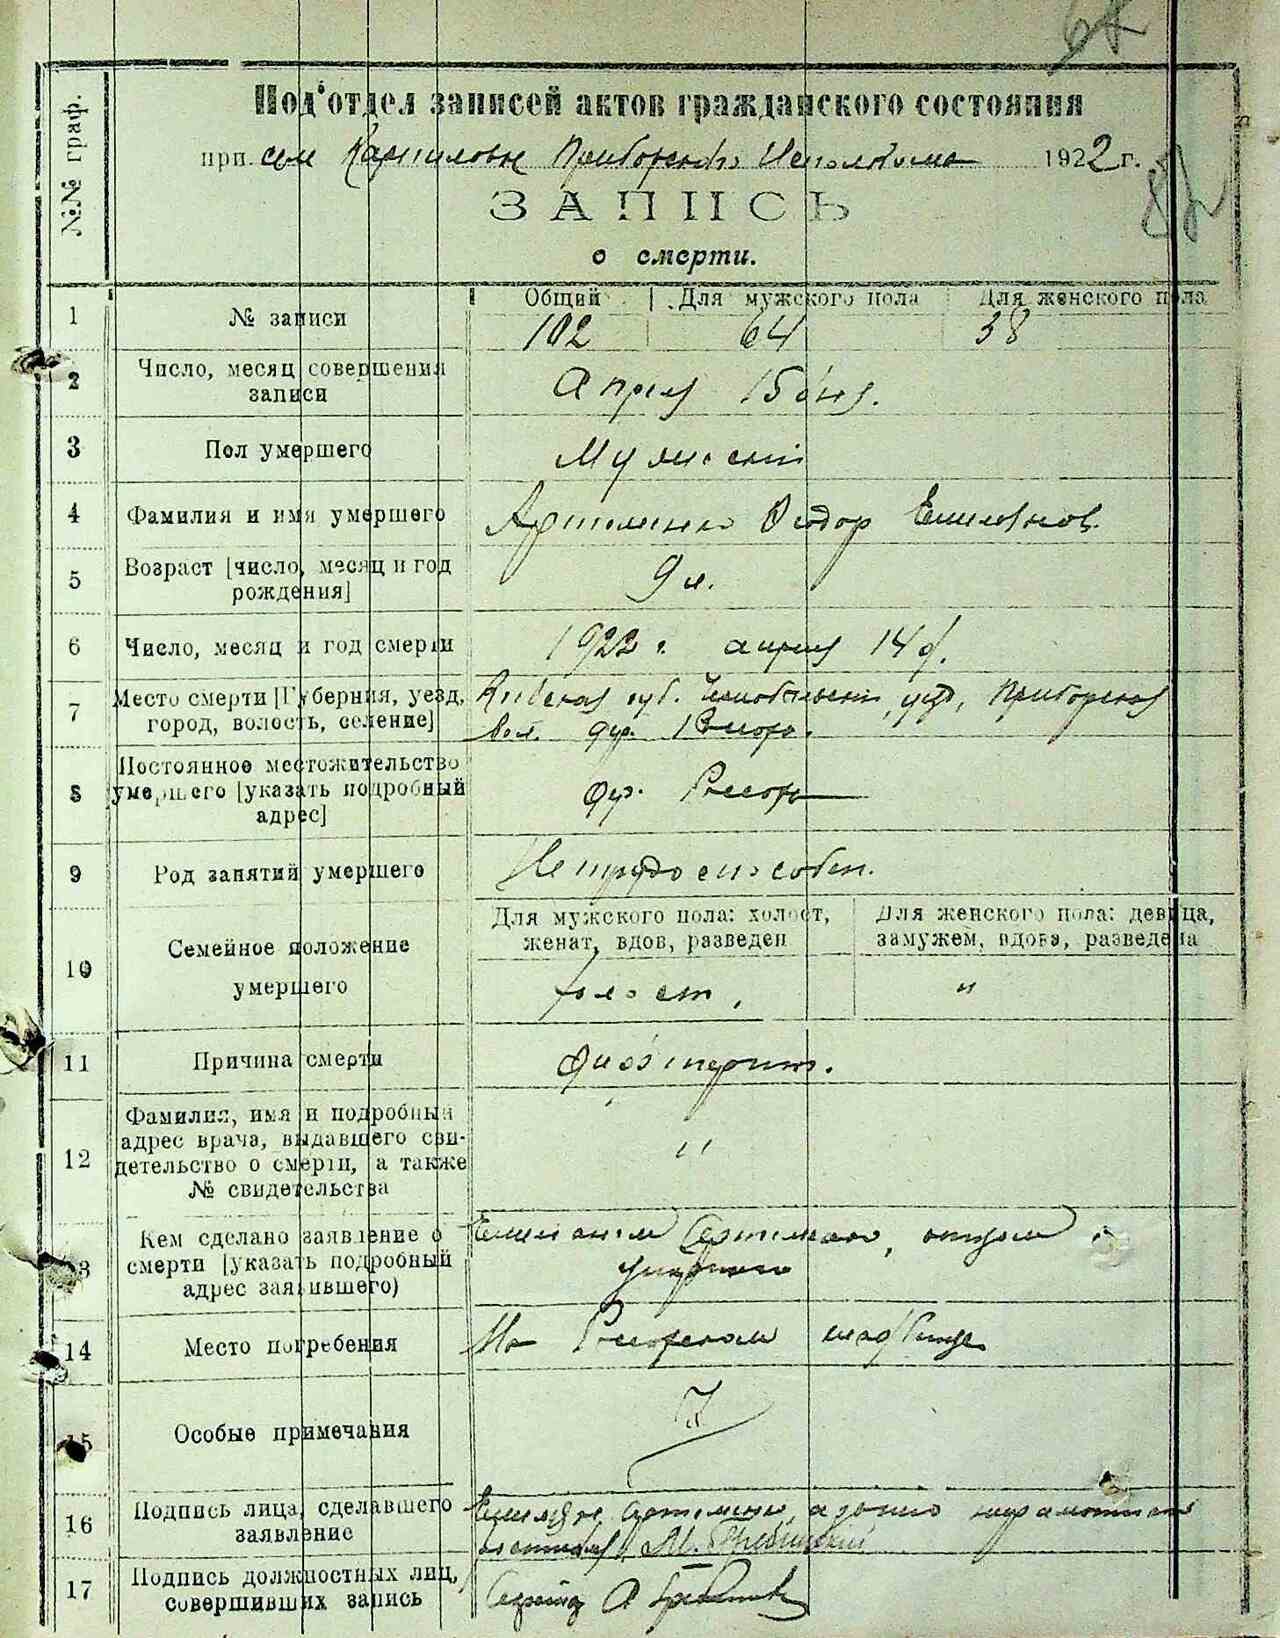 68
Под'отдел записей актов гражданского состояния
№№ граф.
при селе Карпиловке Приборского Исполкома 1922 г.
87
ЗАПИСЬ
о смерти.
1 № записи Общий Для мужского пола Для женского пола
102 64 38
2 Число, месяц совершения записи Апреля 15 дня.
3 Пол умершего Мужской
4 Фамилия и имя умершего Артеменко Феодор Емельянов.
5 Возраст [число, месяц и год рождения] 9 л.
6 Число, месяц и год смерти 1922 г. апреля 14 д.
7 Место смерти [Губерния, уезд, город, волость, селение] Киевская губ. Чернобыльский уезд, Приборская
вол. дер.
8 Постоянное местожительство умершего [указать подробный адрес] дер.
9 Род занятий умершего Нетрудоспособен.
10 Семейное положение умершего
Для мужского пола: холост, женат, вдов, разведен
Для женского пола: девица, замужем, вдова, разведена
холост, "
11 Причина смерти
12 Фамилия, имя и подробный адрес врача, выдавшего свидетельство о смерти, а также № свидетельства "
13 Кем сделано заявление о смерти [указать подробный адрес заявившего) Емельяном Артеменко, отцом
умершего
14 Место погребения На кладбище
15 Особые примечания
16 Подпись лица, сделавшего заявление Емельян Артеменко а за него неграмотного
17 Подпись должностных лиц, совершивших запись